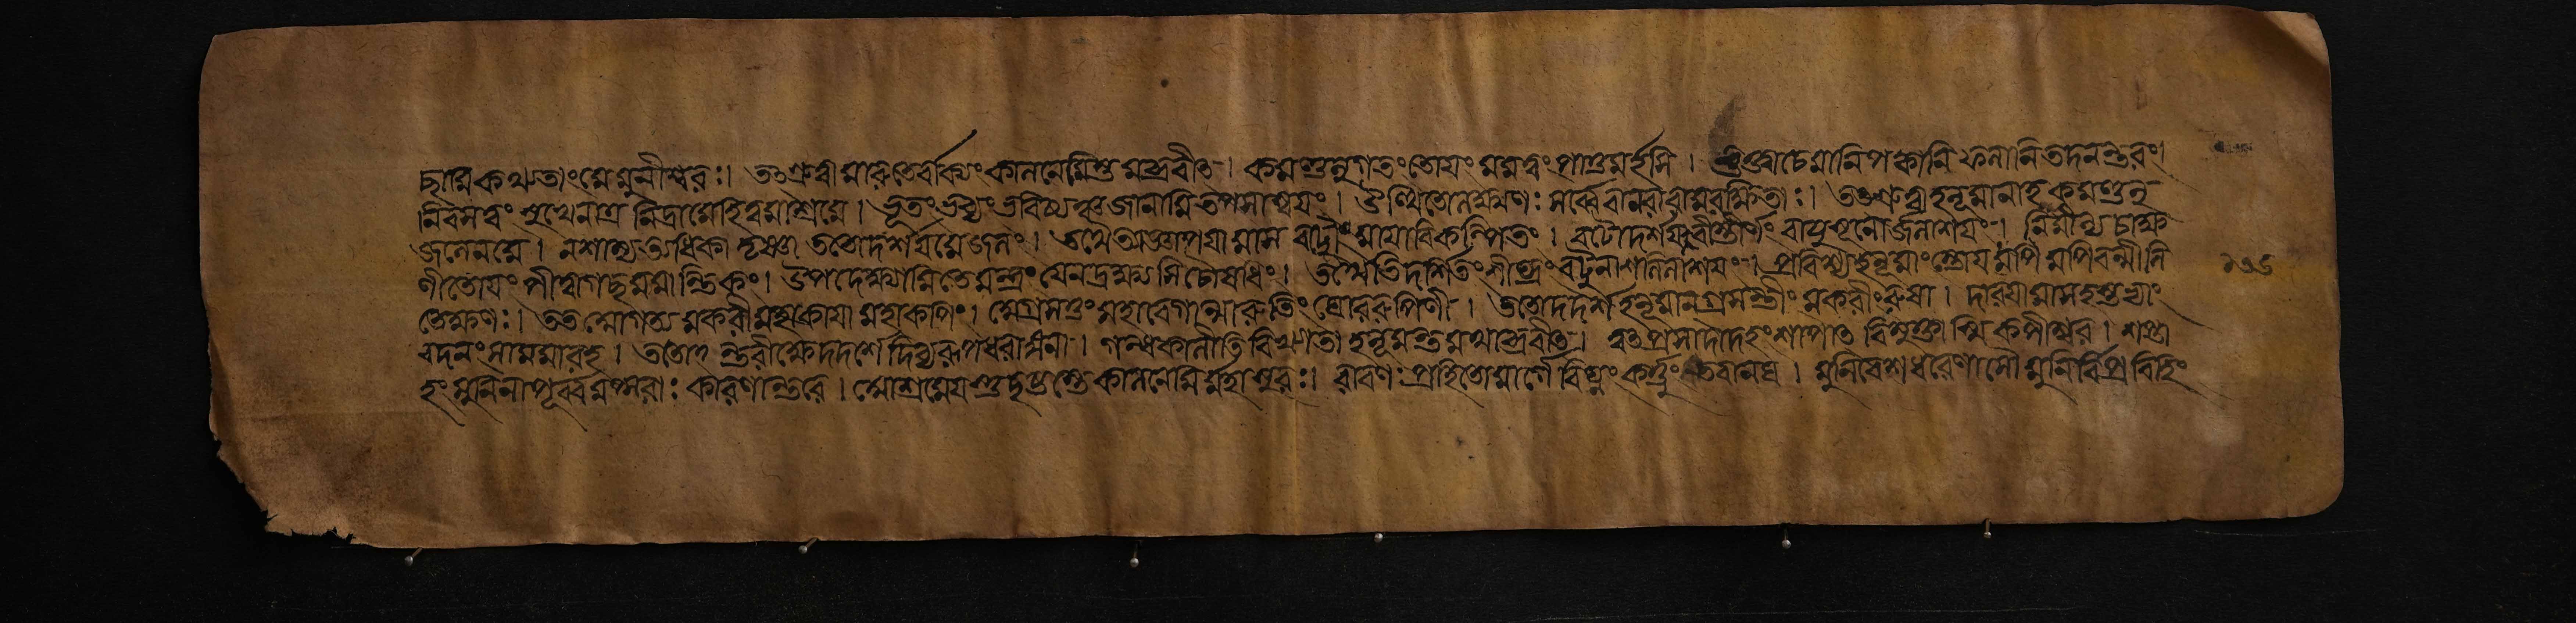 ছামি কথ্যতাং মে মুনীশ্বরঃ। তৎশ্রুত্বা মারুতের্বাক্যং কালনেমিস্তু মব্রবীৎ। কমণ্ডলুগতং তোয়ং মম ত্বং পাতুমর্হসি। ভুঙ্ক্ষ্ব চেমানি পক্কানি ফলানি তদনন্তরং।
নিবস ত্বং সুখেনাত্র নিদ্রামেহি ত্বমাশ্রমে। ভূতং ভব্যং ভবিষ্যঞ্চ জানামি তপসা স্বয়ং। উত্থিতো লক্ষ্মণঃ সর্ব্বে বানরা রামবীক্ষিতাঃ। তৎশ্রুত্বা হনূমানাহ কমণ্ডলু
জলেন মে। ন শাম্যত্যধিকা তৃষ্ণা ততো দর্শয় মে জলং। তথেত্যাজ্ঞাপয়ামাস বটুং মায়াবিকল্পিতং। বটো দর্শয় বিস্তীর্ণং বায়ুসূনোর্জলাশয়ং। নিমীল্য চাক্ষি
ণী তোয়ং পীত্বাগচ্ছ মমান্তিকং। উপদেক্ষ্যামি তে মন্ত্রং যেন দ্রক্ষ্যসি চৌষধিং। তথেতি দর্শিতং শীঘ্রং বটুনা শলিলাশয়ং। প্রবিশ্য হনূমাংস্তোয়মপিবন্মীলি
তেক্ষণঃ। ততশ্চাগত্য মকরী মহাকায়া মহাকপিং। অগ্রসত্তং মহাবেগান্মারুতিং ঘোররূপিণী। ততো দদর্শ হনূমান গ্রসন্তীং মকরীং রুষা। দারয়ামাস হস্তাভ্যাং
বদনং সা মমার হ। ততোন্তরীক্ষে দদৃশে দিব্যরূপধরাঙ্গনা। ধান্যমালীতি বিখ্যাতা হনূমন্তমথাব্রবীৎ। ত্বৎপ্রসাদাদহং শাপাৎ বিমুক্তাস্মি কপীশ্বর। শপ্তা
হং মুনিনা পূর্ব্বমপ্সরাঃ কারণান্তরে। আশ্রমে যস্তু তে দৃষ্টঃ কালনেমির্মহাসুরঃ। রাবণ প্রহিতো মার্গে বিঘ্নং কর্ত্তুং তবানঘ। মুনিবেশধরো নাসৌ মুনির্বিপ্রবিহিং